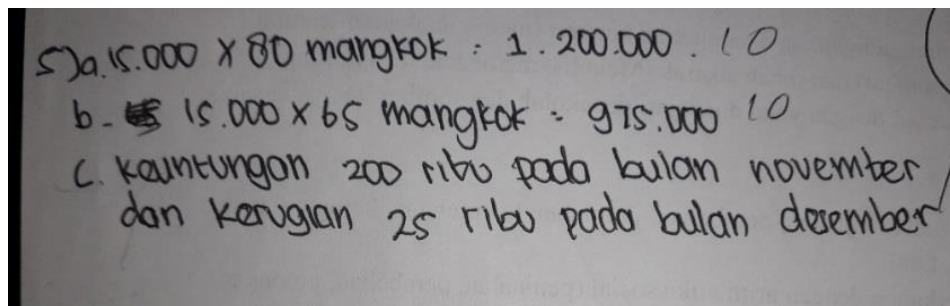 5)a. 15.000 x 80 mangkok = 1.200.000. 10
b. 15.000 x 65 mangkok = 975.000 10
c. Keuntungan 200 ribu pada bulan november
dan Kerugian 25 ribu pada bulan desember